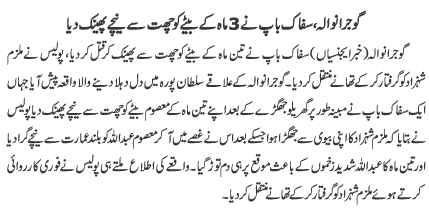 گوجرانوالہ، سفاک باپ نے 3 ماہ کے بیٹے کو چھت سے نیچے پھینک دیا
گوجرانوالہ (خبر ایجنسیاں) سفاک باپ نے تین ماہ کے بیٹے کو چھت سے پھینک کر قتل کر دیا، پولیس نے ملزم
شہزاد کو گرفتار کر کے تھانے منتقل کر دیا۔ گوجرانوالہ کے علاقے سلطان پورہ میں دل دہلا دینے والا واقعہ پیش آیا جہاں
ایک سفاک باپ نے مبینہ طور پر گھریلو جھگڑے کے بعد اپنے تین ماہ کے معصوم بیٹے کو چھت سے نیچے پھینک دیا پولیس
نے بتایا کہ ملزم شہزاد کا اپنی بیوی سے جھگڑا ہوا جسکے بعد اس نے غصے میں آ کر معصوم عبداللہ کو بلند عمارت سے نیچے گرا دیا
اور تین ماہ کا عبداللہ شدید زخموں کے باعث موقع پر ہی دم توڑ گیا۔ واقعے کی اطلاع ملتے ہی پولیس نے فوری کارروائی
کرتے ہوئے ملزم شہزاد کو گرفتار کر کے تھانے منتقل کر دیا۔